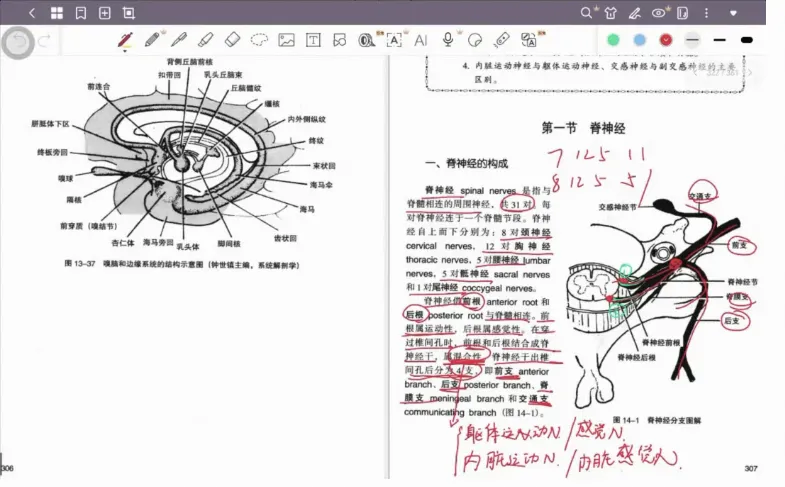 背侧丘脑前核
扣带回
乳头丘脑束
前连合
丘脑髓纹
缰核
胼胝体下区
内外侧纵纹
终板旁回
终纹
嗅球
束状回
隔核
海马伞
海马
前穿质（嗅结节）
齿状回
杏仁体
海马旁回
乳头体
脚间核
图 13-37 嗅脑和边缘系统的结构示意图（钟世镇主编，系统解剖学）
306
4. 内脏运动神经与躯体运动神经、交感神经与副交感神经的主要
区别。
第一节 脊神经
7 12 5 11
8 12 5 5 1
一、脊神经的构成
脊神经 spinal nerves 是指与
脊髓相连的周围神经，共 31 对，每
对脊神经连于一个脊髓节段。脊神
经自上而下分别为：8 对颈神经
cervical nerves，12 对胸神经
thoracic nerves，5 对腰神经 lumbar
nerves，5 对骶神经 sacral nerves
和 1 对尾神经 coccygeal nerves。
脊神经借前根 anterior root 和
后根 posterior root 与脊髓相连。前
根属运动性，后根属感觉性。在穿
过椎间孔时，前根和后根结合成脊
神经干，属混合性。脊神经干出椎
间孔后分为 4 支，即前支 anterior
branch、后支 posterior branch、脊
膜支 meningeal branch 和交通支
communicating branch（图 14-1）。
交通支
交感神经节
前支
脊神经节
脊膜支
后支
脊神经前根
脊神经后根
图 14-1 脊神经分支图解
躯体运动N/感觉N.
内脏运动N./内脏感觉N.
307